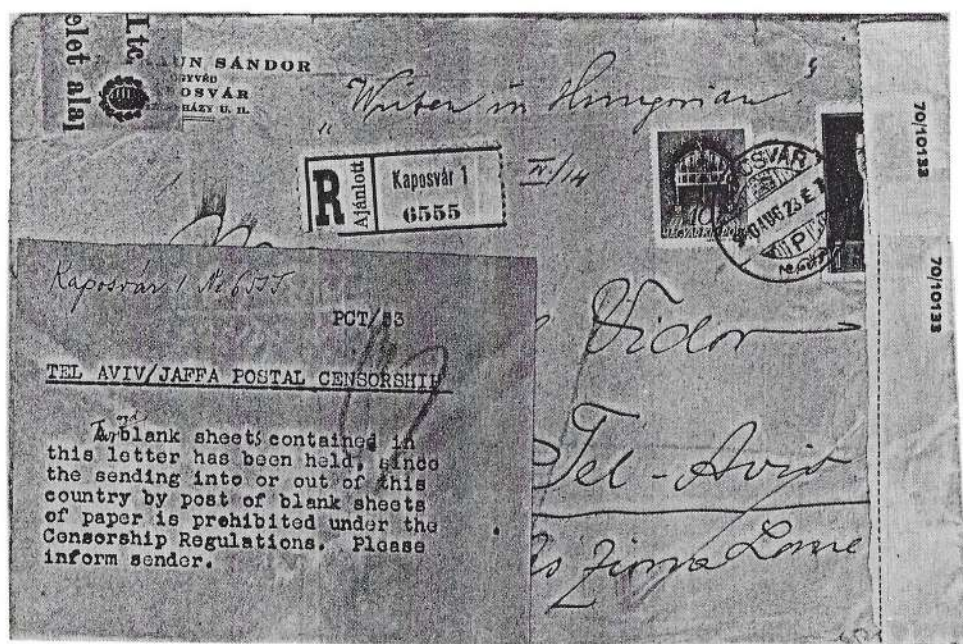 Ltc
elet alal
UN SÁNDOR
GYVÉD
OSVÁR
HÁZY U. 11.
"Writen in Hungorian"
R
Ajánlott
Kaposvár 1
6555
IV/14
10
OSVÁR
40 AUG 23 E
P
70/10133
70/10133
Kaposvár 1 № 6555
PCT/53
TEL AVIV/JAFFA POSTAL CENSORSHIP
Two blank sheets contained in
this letter has been held, since
the sending into or out of this
country by post of blank sheets
of paper is prohibited under the
Censorship Regulations. Please
inform sender.
Vidor
Tel-Aviv